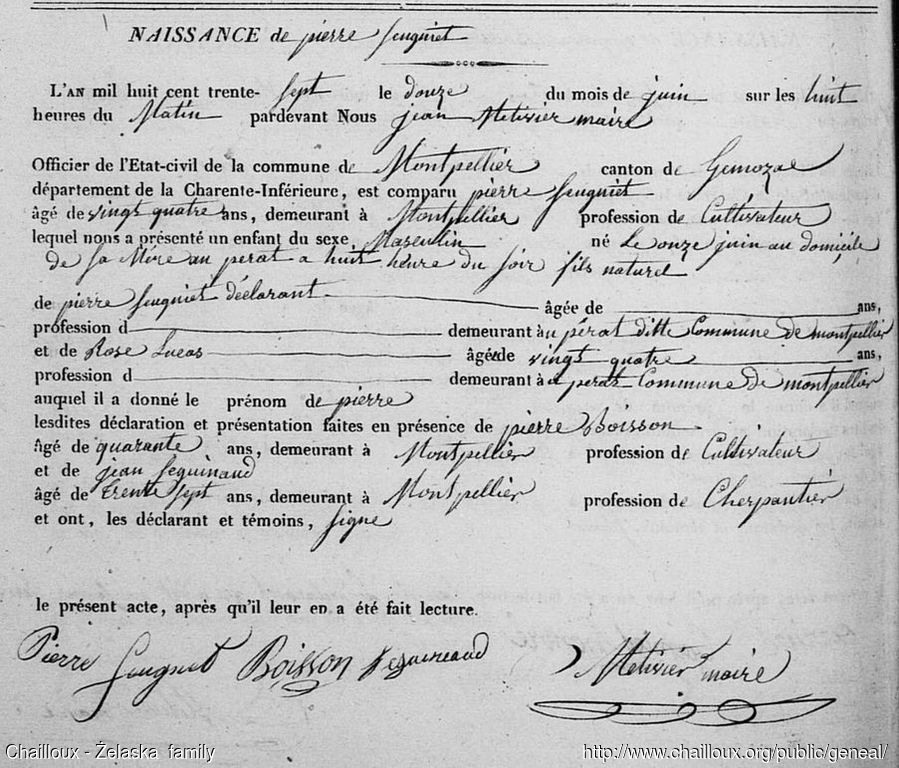 NAISSANCE de pierre feugniet
L'AN mil huit cent trente- sept le douze du mois de juin sur les huit
heures du Matin pardevant Nous jean Metivier maire
Officier de l'Etat-civil de la commune de Montpellier canton de Gemozac
département de la Charente-Inférieure, est comparu pierre feugniet
âgé de vingt quatre ans, demeurant à Montpellier profession de Cultivateur
lequel nous a présenté un enfant du sexe Masculin né Le onze juin au domicile
de sa Mere au perat a huit heure du soir fils naturel
de pierre feugniet déclarant âgée de ans,
profession d demeurant à u pérat ditte Commune de montpellier
et de Rose Lucas âgée de vingt quatre ans,
profession d demeurant à u perat Commune de montpellier
auquel il a donné le prénom de pierre
lesdites déclaration et présentation faites en présence de pierre Boisson
âgé de quarante ans, demeurant à Montpellier profession de Cultivateur
et de jean Seguinaud
âgé de trente sept ans, demeurant à Montpellier profession de Cherpantier
et ont, les déclarant et témoins, signe
le présent acte, après qu'il leur en a été fait lecture.
Pierre feugniet Boisson Seguineaud Metivier maire
Chailloux - Żelaska family http://www.chailloux.org/public/geneal/